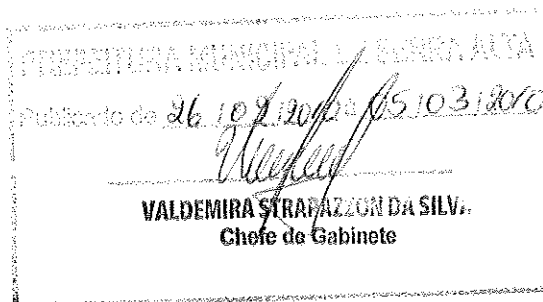 PREFEITURA MUNICIPAL DE SERRA ALTA
Publicado de 26/02/2010 a 05/03/2010
VALDEMIRA STRAPAZZON DA SILVA
Chefe de Gabinete